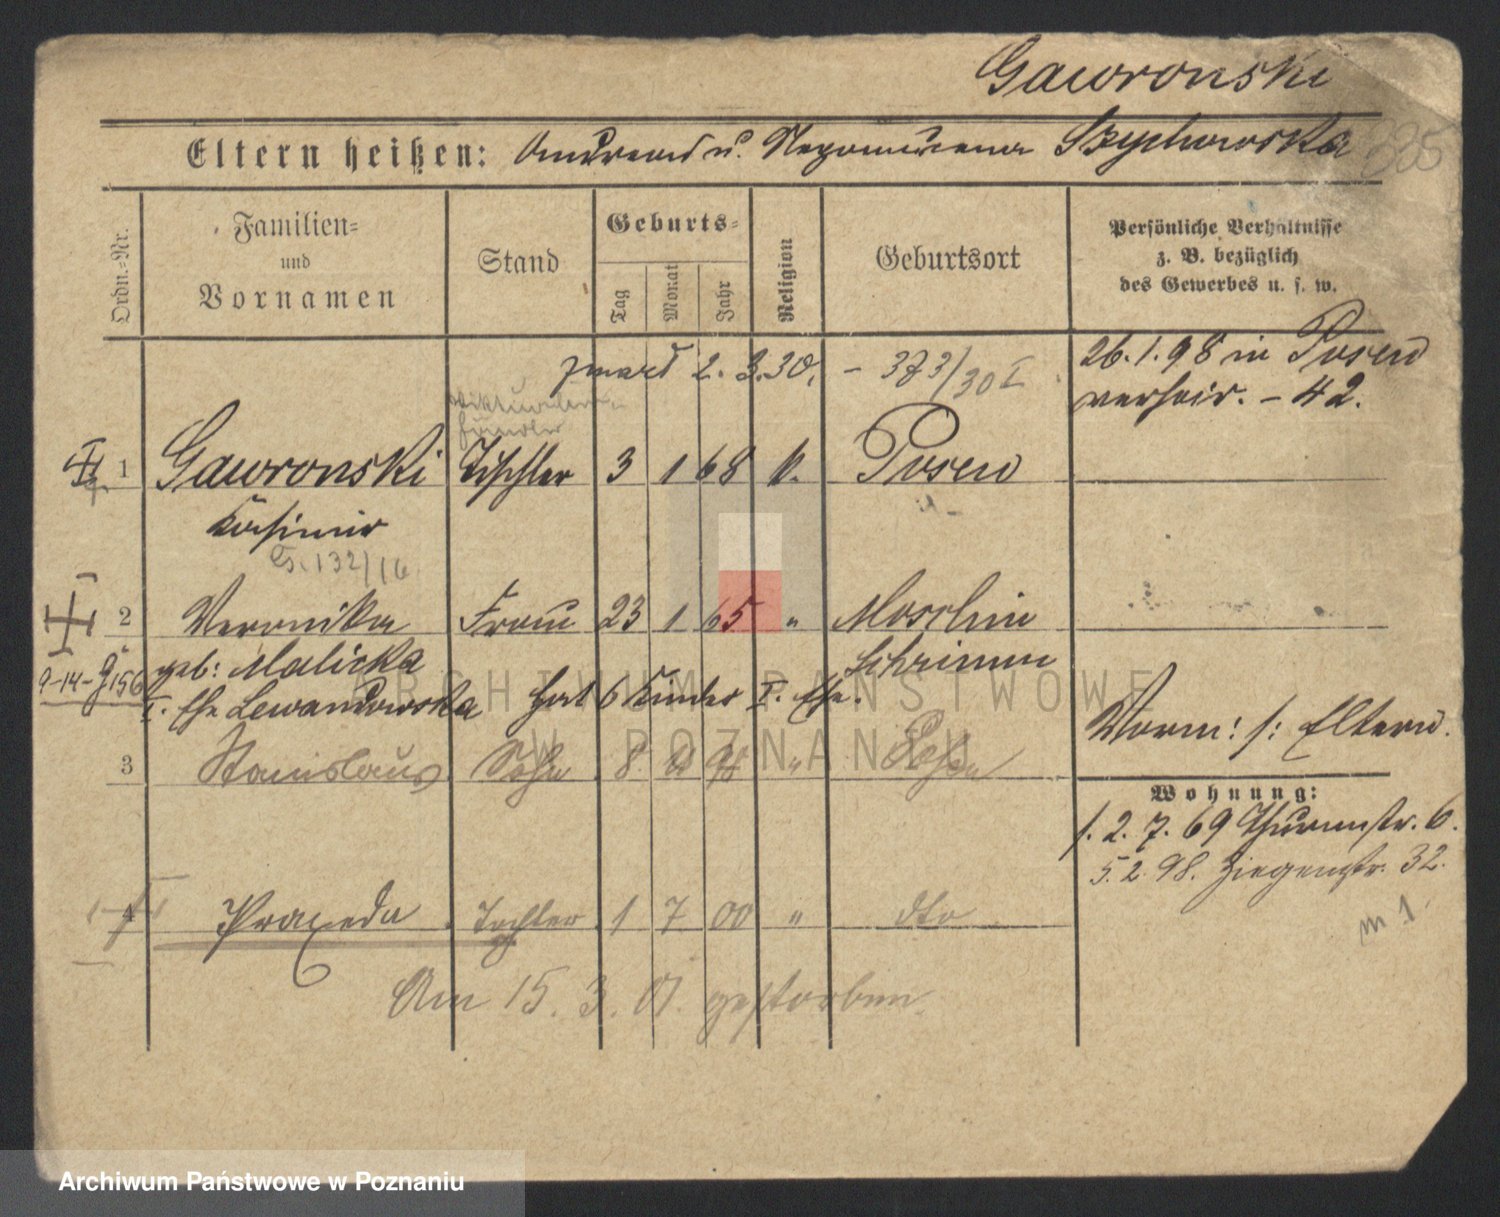 Gawronski
Eltern heißen: Andreas u. Nepomucena Szychowska
Ordn.=Nr.
Familien=
und
Vornamen
Stand
Geburts=
Tag
Monat
Jahr
Religion
Geburtsort
Persönliche Verhältnisse
z. B. bezüglich
des Gewerbes u. s. w.
2. 3. 30. - 373/30 I
26. 1. 98 in Posen
verheir. - 42.
1 Gawronski Tischler 3 1 68 k. Posen
Kasimir
G. 132/16
2 Veronika Frau 23 1 65 " Moschin
geb: Malicka Schrimm
9-14-G156
I. Ehe Lewandowska hat 6 Kinder I. Ehe.
Vorm: s: Eltern.
3 Stanislaus Sohn 8 11 98 " Posen
Wohnung:
s. 2. 7. 69 Thurmstr. 6.
5. 2. 98. Ziegenstr. 32.
m 1.
4 Praxeda Tochter 1 7 00 " dto
Am 15. 3. 01. gestorben.
ARCHIWUM PAŃSTWOWE
W POZNANIU
Archiwum Państwowe w Poznaniu